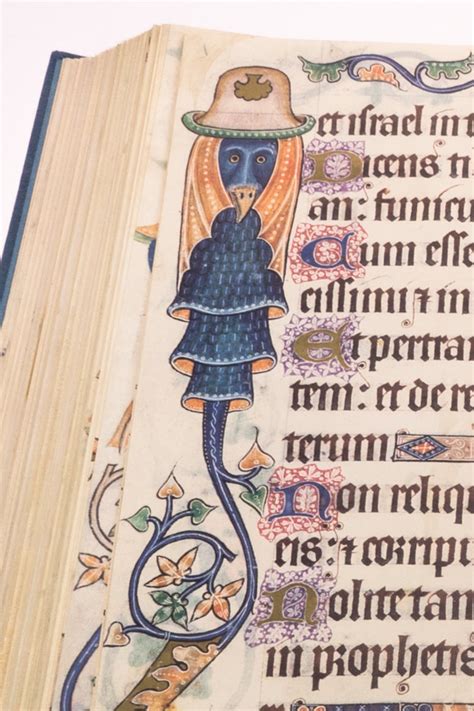 et israel in
Dicens ti
an: funicu
Cum esse
cissimi ⁊ in
Et pertran
tem: et de re
terum
Non reliq
eis: ⁊ corrip
Nolite tan
in prophetis